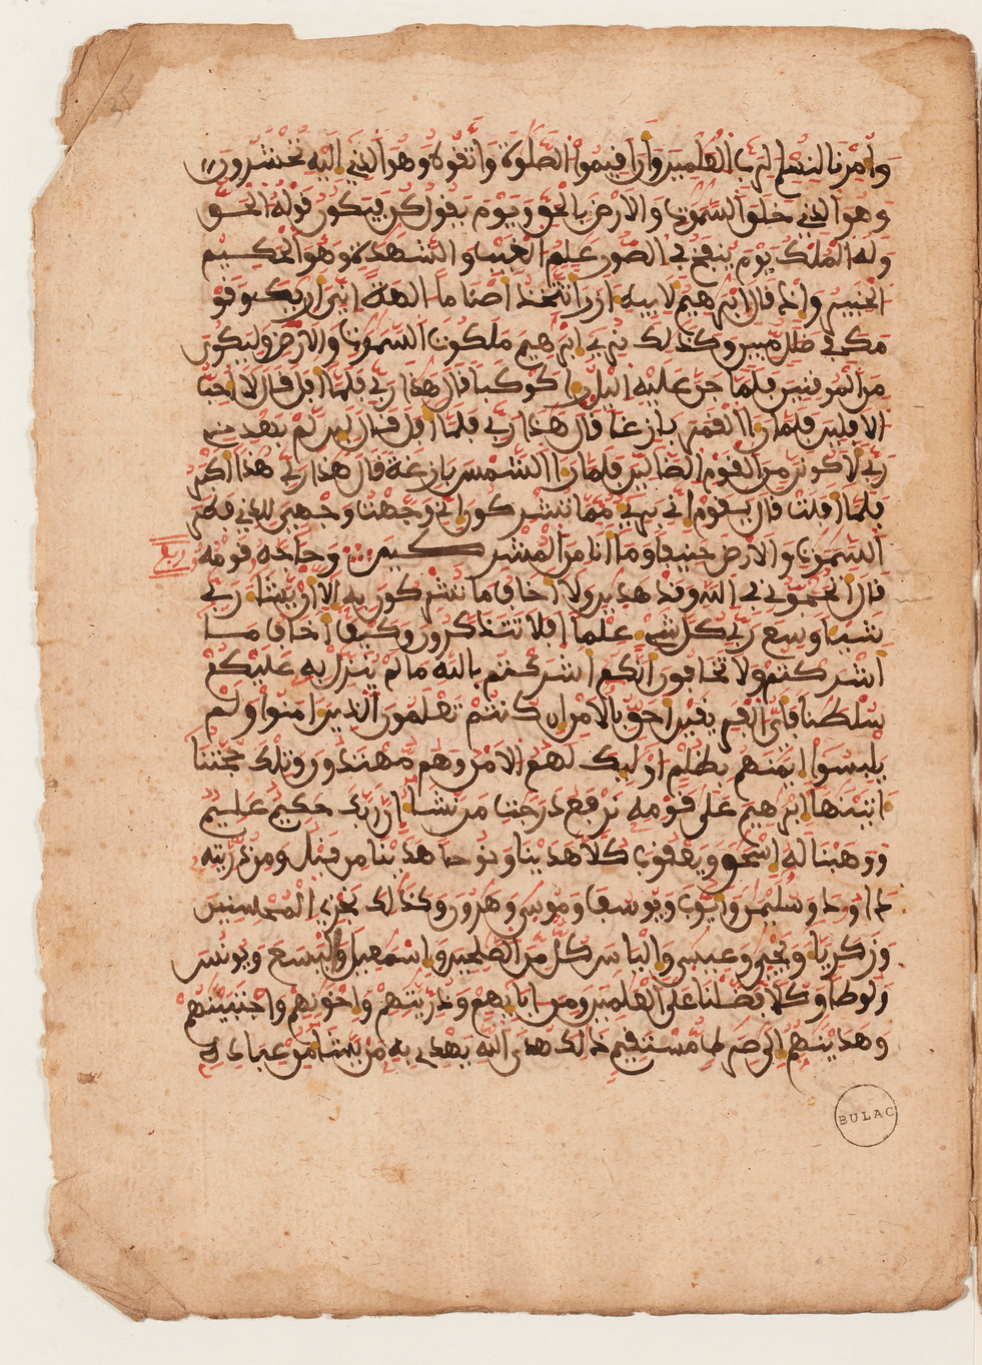 وأمرنا لنسلم لرب العلمين وأن أقيموا الصلوة واتقوه وهو الذي إليه تحشرون
وهو الذي خلق السموت والأرض بالحق ويوم يقول كن فيكون قوله الحق
وله الملك يوم ينفخ في الصور علم الغيب والشهدة وهو الحكيم
الخبير وإذ قال إبرهيم لأبيه ازر أتتخذ أصناما الهة إني أريك وقو
مك في ضلل مبين وكذلك نري إبرهيم ملكوت السموت والأرض وليكون
من الموقنين فلما جن عليه اليل را كوكبا قال هذا ربي فلما أفل قال لا أحب
الافلين فلما را القمر بازغا قال هذا ربي فلما أفل قال لين لم يهدني
ربي لأكونن من القوم الضالين فلما را الشمس بازغة قال هذا ربي هذا أكبر
فلما أفلت قال يقوم إني بري مما تشركون إني وجهت وجهي للذي فطر
السموت والأرض حنيفا وما أنا من المشركين وحاجه قومه
قال أتحجوني في الله وقد هدين ولا أخاف ما تشركون به إلا أن يشا ربي
شيا وسع ربي كل شي علما أفلا تتذكرون وكيف أخاف ما
أشركتم ولا تخافون أنكم أشركتم بالله ما لم ينزل به عليكم
سلطنا فأي الفريقين أحق بالأمن إن كنتم تعلمون الذين امنوا ولم
يلبسوا إيمنهم بظلم أوليك لهم الأمن وهم مهتدون وتلك حجتنا
اتينها إبرهيم على قومه نرفع درجت من نشا إن ربك حكيم عليم
ووهبنا له إسحق ويعقوب كلا هدينا ونوحا هدينا من قبل ومن ذريته
داود وسليمن وأيوب ويوسف وموسى وهرون وكذلك نجزي المحسنين
وزكريا ويحيى وعيسى وإلياس كل من الصلحين وإسمعيل واليسع ويونس
ولوطا وكلا فضلنا على العلمين ومن ابايهم وذريتهم وإخونهم واجتبينهم
وهدينهم إلى صرط مستقيم ذلك هدى الله يهدي به من يشا من عباده
BULAC